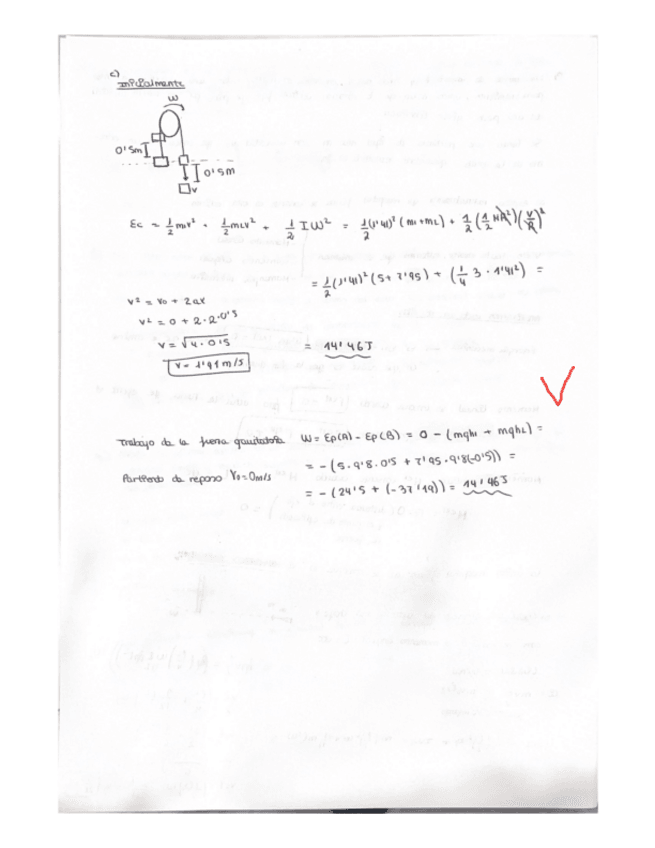 c)
Inicialmente
W
0'5m
0'5m
v
Ec = 1/2 m1v² + 1/2 m2v² + 1/2 I W² = 1/2 (1'41)² (m1+m2) + 1/2 (1/2 MR²)(V/R)²
= 1/2 (1'41)² (5+7'95) + (1/4 3 · 1'41²) =
v² = v0 + 2ax
v² = 0 + 2·2·0'5
v = √4·0'5
= 14'46J
v = 1'41 m/s
Trabajo de la fuerza gravitatoria W = Ep(A) - Ep(B) = 0 - (mgh1 + mgh2) =
= - (5·9'8·0'5 + 7'95·9'8(-0'5)) =
Partiendo de reposo V0 = 0m/s
= - (24'5 + (-37'19)) = 14'46J